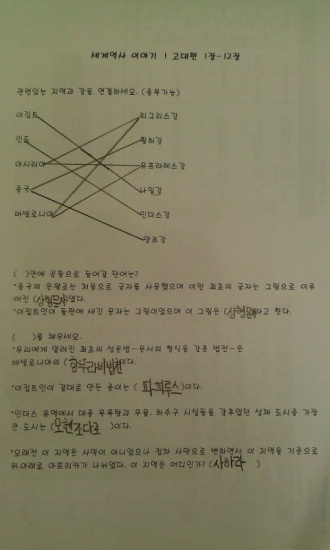 세계역사 이야기 1 고대편 1장-12장
관련있는 지역과 강을 연결하세요. (중복가능)
이집트 티그리스강
인도 황허강
아시리아 유프라테스강
중국 나일강
바빌로니아 인더스강
양쯔강
( )안에 공통으로 들어갈 단어는?
*중국의 은왕조는 처음으로 글자를 사용했으며 이런 최초의 글자는 그림으로 이루
어진 (상형문자)였다.
*이집트인이 돌판에 새긴 문자는 그림이었으며 이 그림은 (상형문자)라고 한다.
( )를 채우세요.
*우리에게 알려진 최초의 성문법-문서의 형식을 갖춘 법전-은
바빌로니아의 (함무라비법전)이다.
*이집트인이 갈대로 만든 종이는 ( 파피루스 )이다.
*인더스 유역에서 대중 목욕탕과 우물, 하수구 시설등을 갖추었던 성채 도시중 가장
큰 도시는 (모헨조다로 )이다.
*오래전 이 지역은 사막이 아니었으나 점차 사막으로 변하면서 이 지역을 기준으로
위,아래로 아프리카가 나뉘었다. 이 지역은 어디인가? (사하라 )